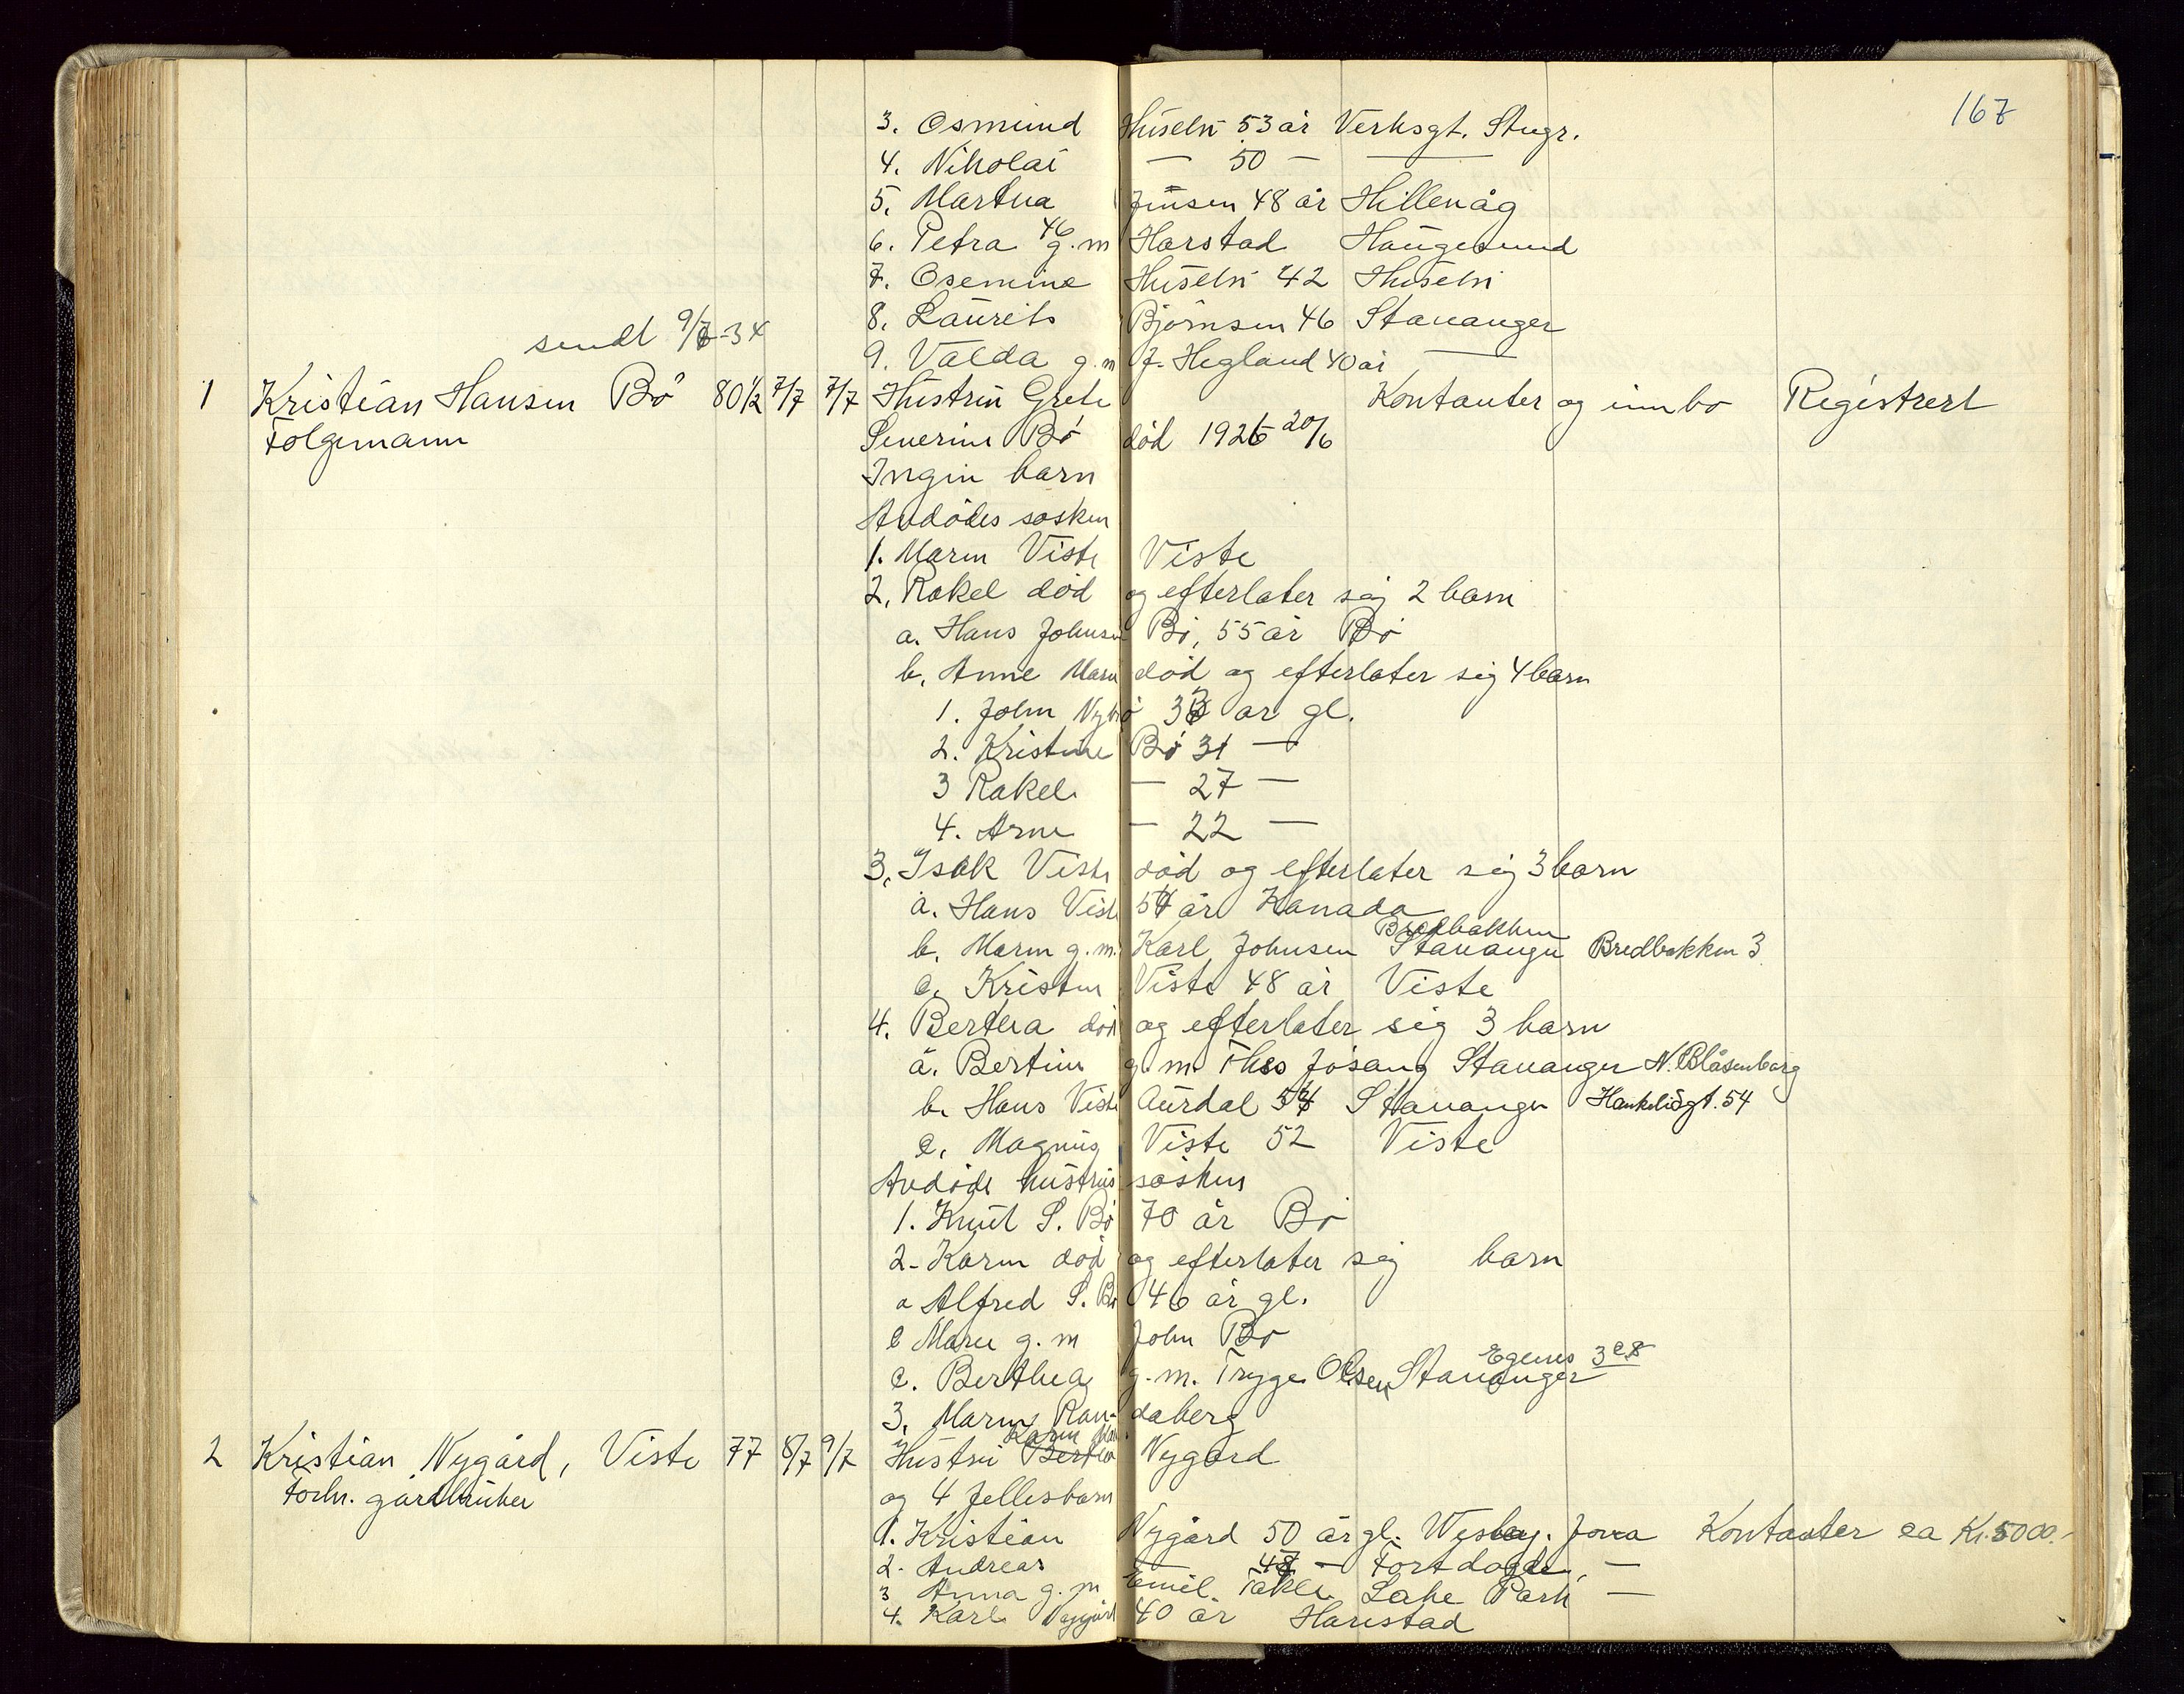 167
3. Osmund Husebø 53 år Verksgt. Stngr.
4. Nikolai — 50 — —
5. Martha Jensen 48 år Hillevåg
6. Petra 46 g.m Harstad Haugesund
7. Osemine Husebø 42 Husebø
8. Laurits Bjørnsen 46 Stavanger
sendt 9/8-34
9. Valda g.m J. Hegland 40 år —
1 Kristian Hansen Bø 80 1/2 7/7 7/7 Hustru Grete Kontanter og innbo Registrert
Folgemann Severine Bø død 1926 20/6
Ingen barn
Avdødes søsken
1. Maren Viste Viste
2. Rakel død og efterlater sig 2 barn
a. Hans Johnsen Bø, 55 år Bø
b. Anne Marie død og efterlater sig 4 barn
1. John Nybø 33 år gl.
2. Kristine Bø 31 —
3 Rakel — 27 —
4. Arne — 22 —
3. Isak Viste død og efterlater sig 3 barn
a. Hans Viste 54 år Kanada
Bredbakken
b. Maren g.m. Karl Johnsen Stavanger Bredbakken 3
c. Kristen Viste 48 år Viste
4. Bertha død og efterlater sig 3 barn
a. Bertine g.m. Theo Jøsang Stavanger N. Blåsenborg
b. Hans Viste Aurdal 54 Stavanger Haukeligt. 54
c. Magnus Viste 52 Viste
Avdøde hustrus søsken
1. Knut S. Bø 70 år Bø
2. Karen død og efterlater sig barn
a Alfred S. Bø 46 år gl.
b Marie g.m John Bø
Egenes
c. Berthea g.m. Trygve Olsen Stavanger
3. Maren Randaberg
Karen
2 Kristian Nygård, Viste 77 8/7 9/7 Hustru Bertha Nygård
Forh. gårdbruker og 4 fellesbarn
1. Kristian Nygård 50 år gl. Wesley. Jova Kontanter ca Kr. 5000.-
2. Andreas — 48 — Fort dogde, —
3 Anna g.m Emil Takle Lake Park —
4. Karl Nygård 40 år Harestad